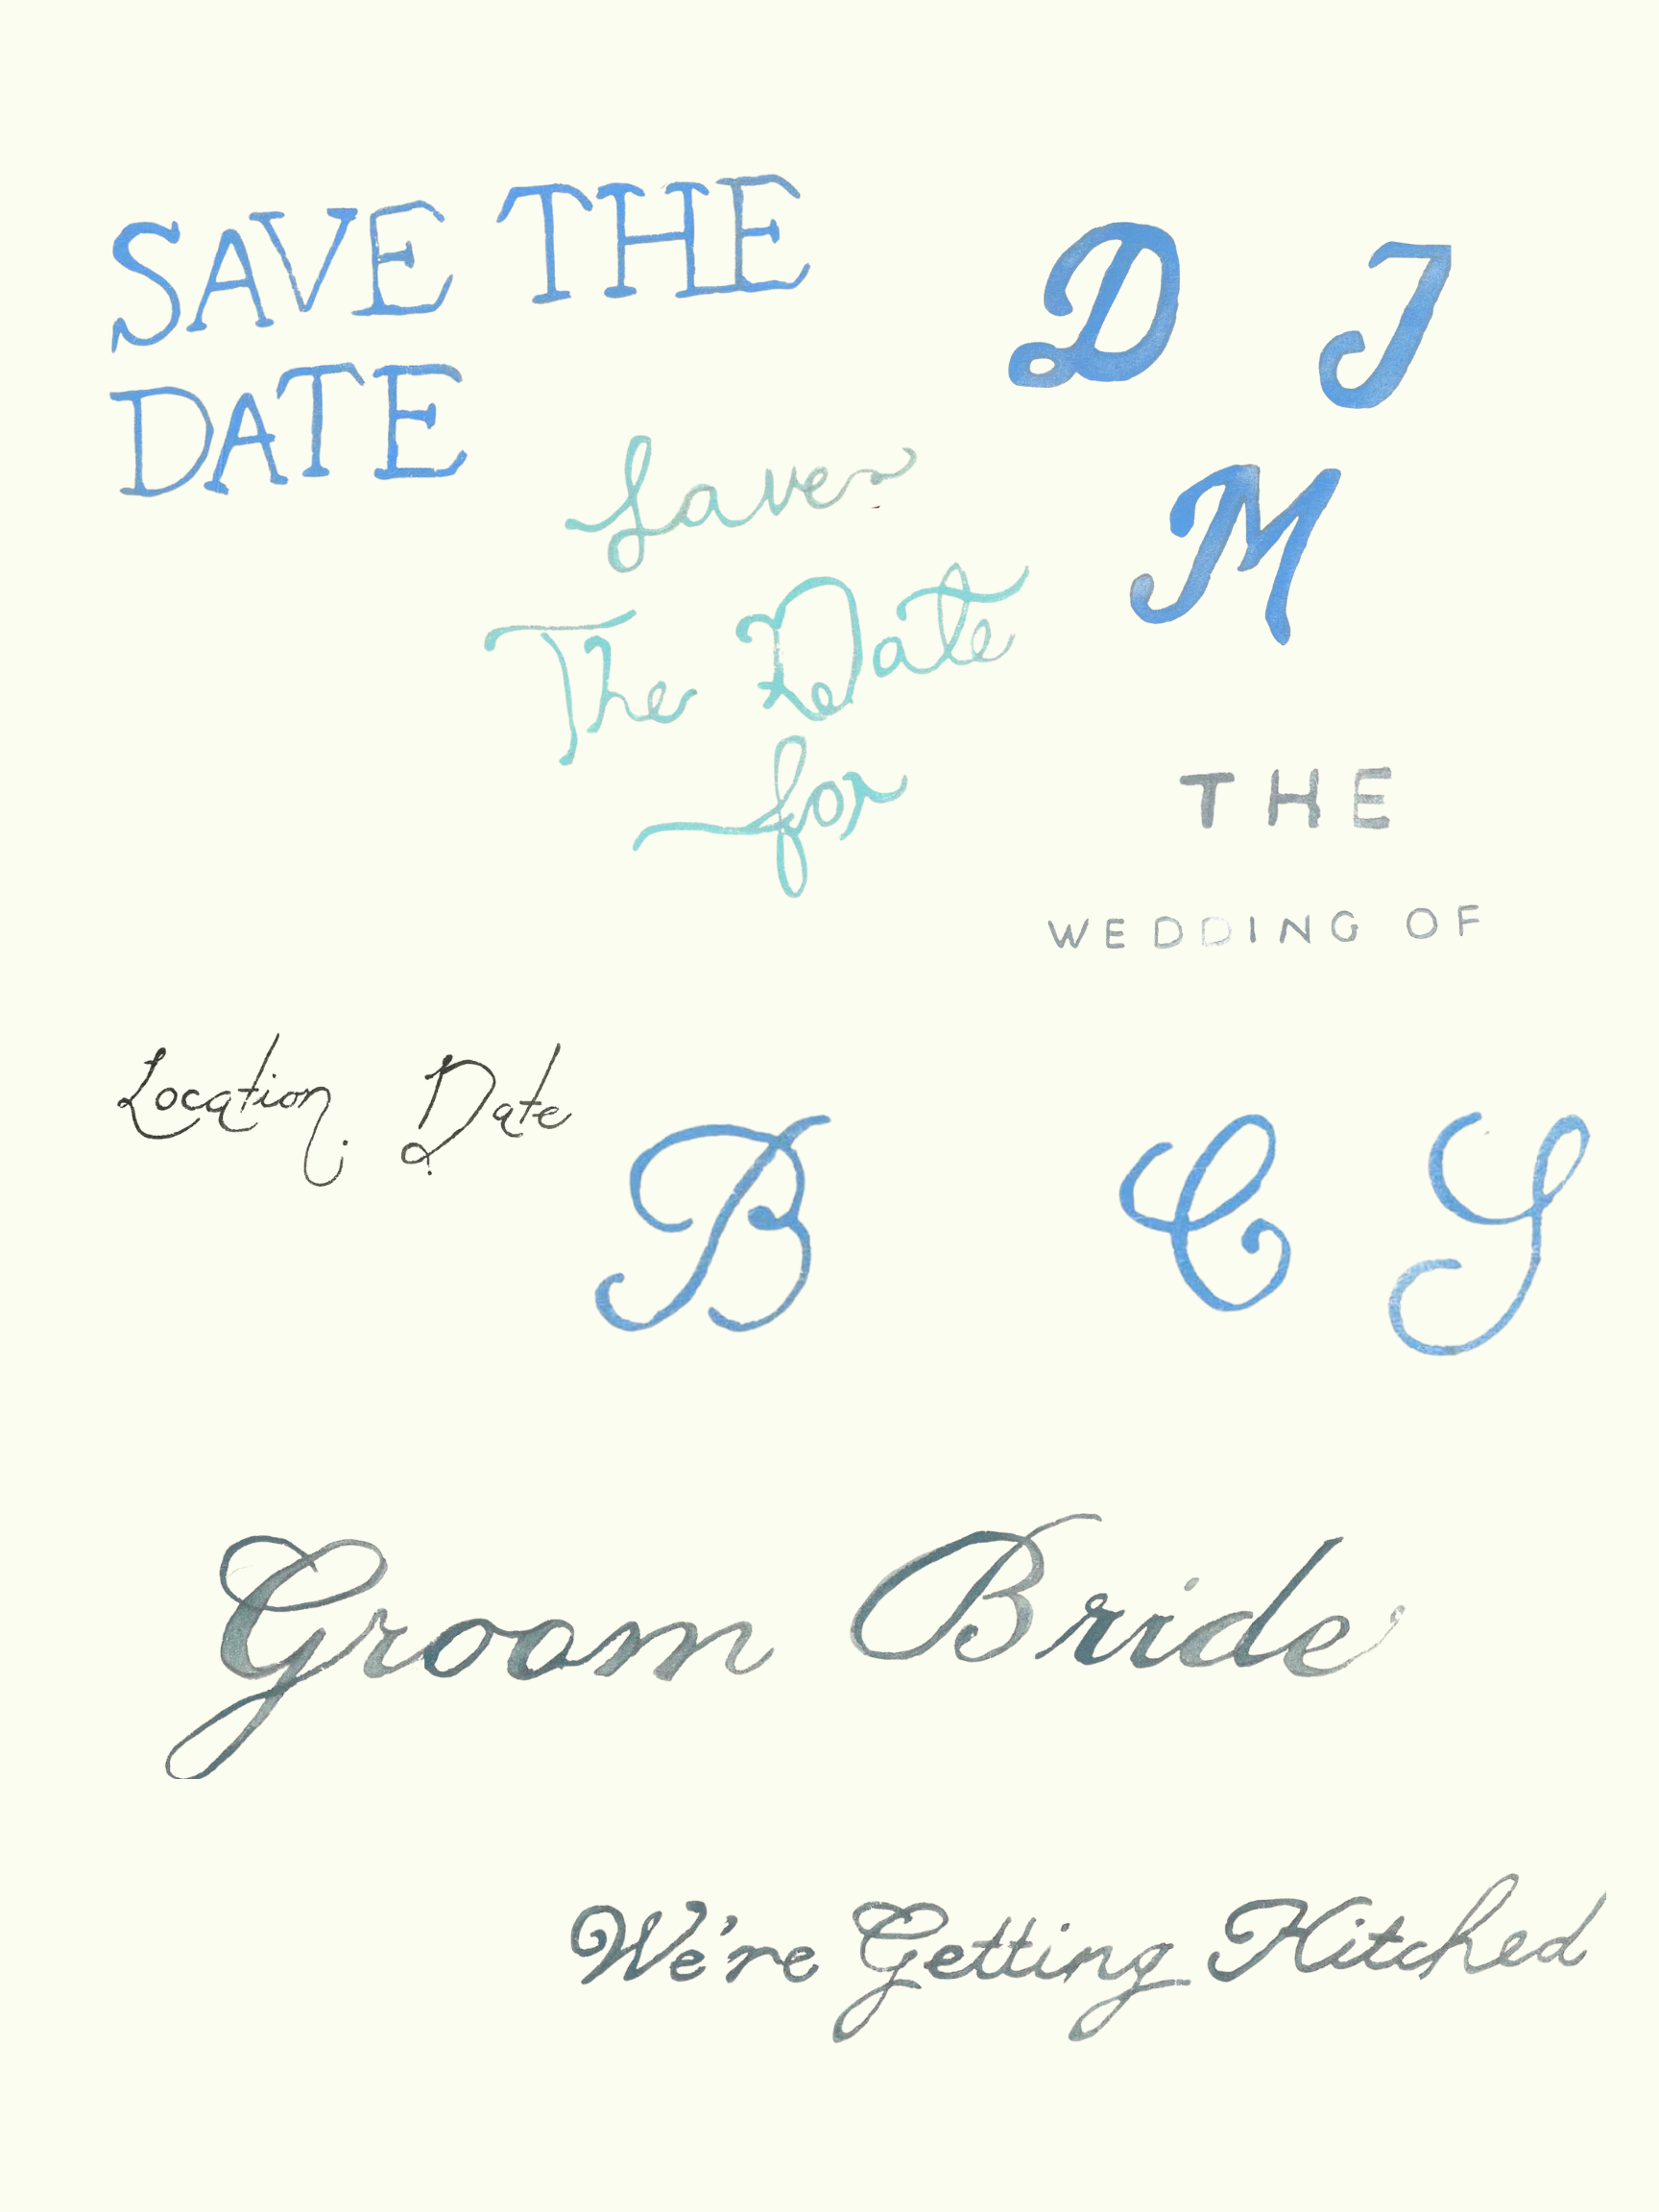 SAVE THE
DATE
D J
M
Save
The Date
for
THE
WEDDING OF
Location Date
B C S
Groom Bride
We're Getting Hitched